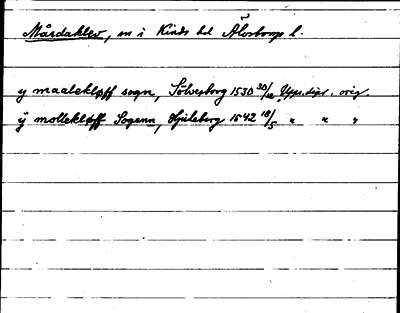 Mårdaklev, sn i Kinds hd Älvsborgs l.
y maalekløff sogn, Sølvesborg 1530 30/12 Upps. dipl. orig.
ÿ mollekløff Sogenn, Hjuleberg 1542 18/5 " " "